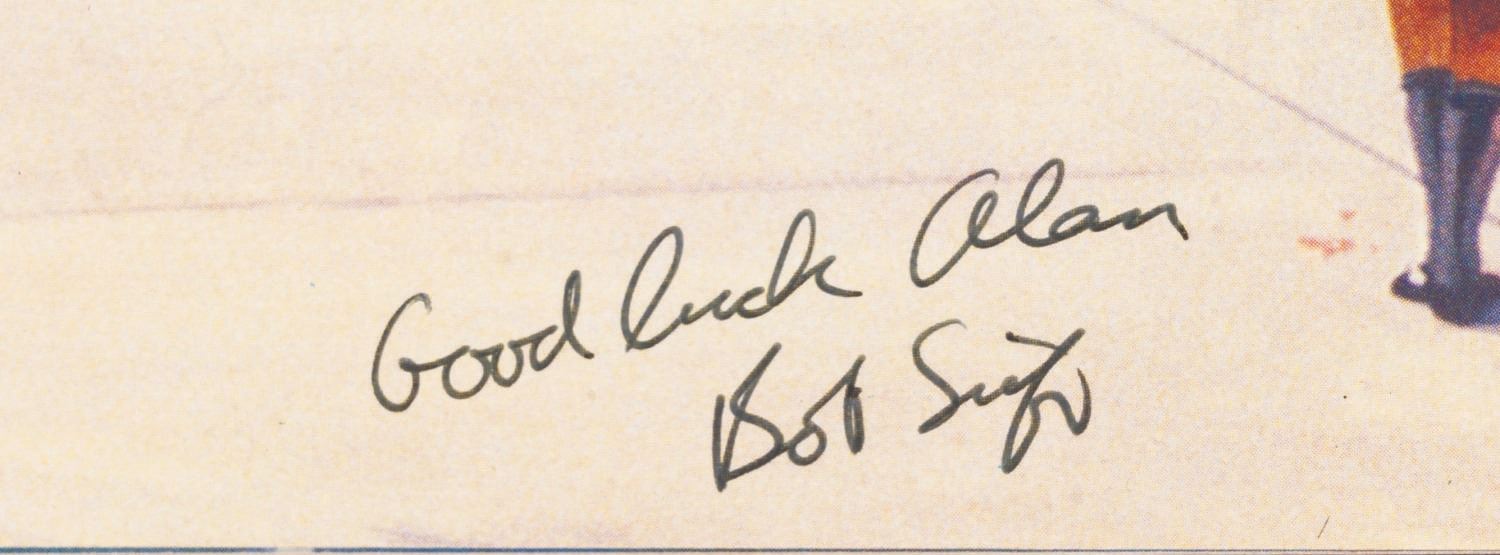 Good luck Alan
Bob